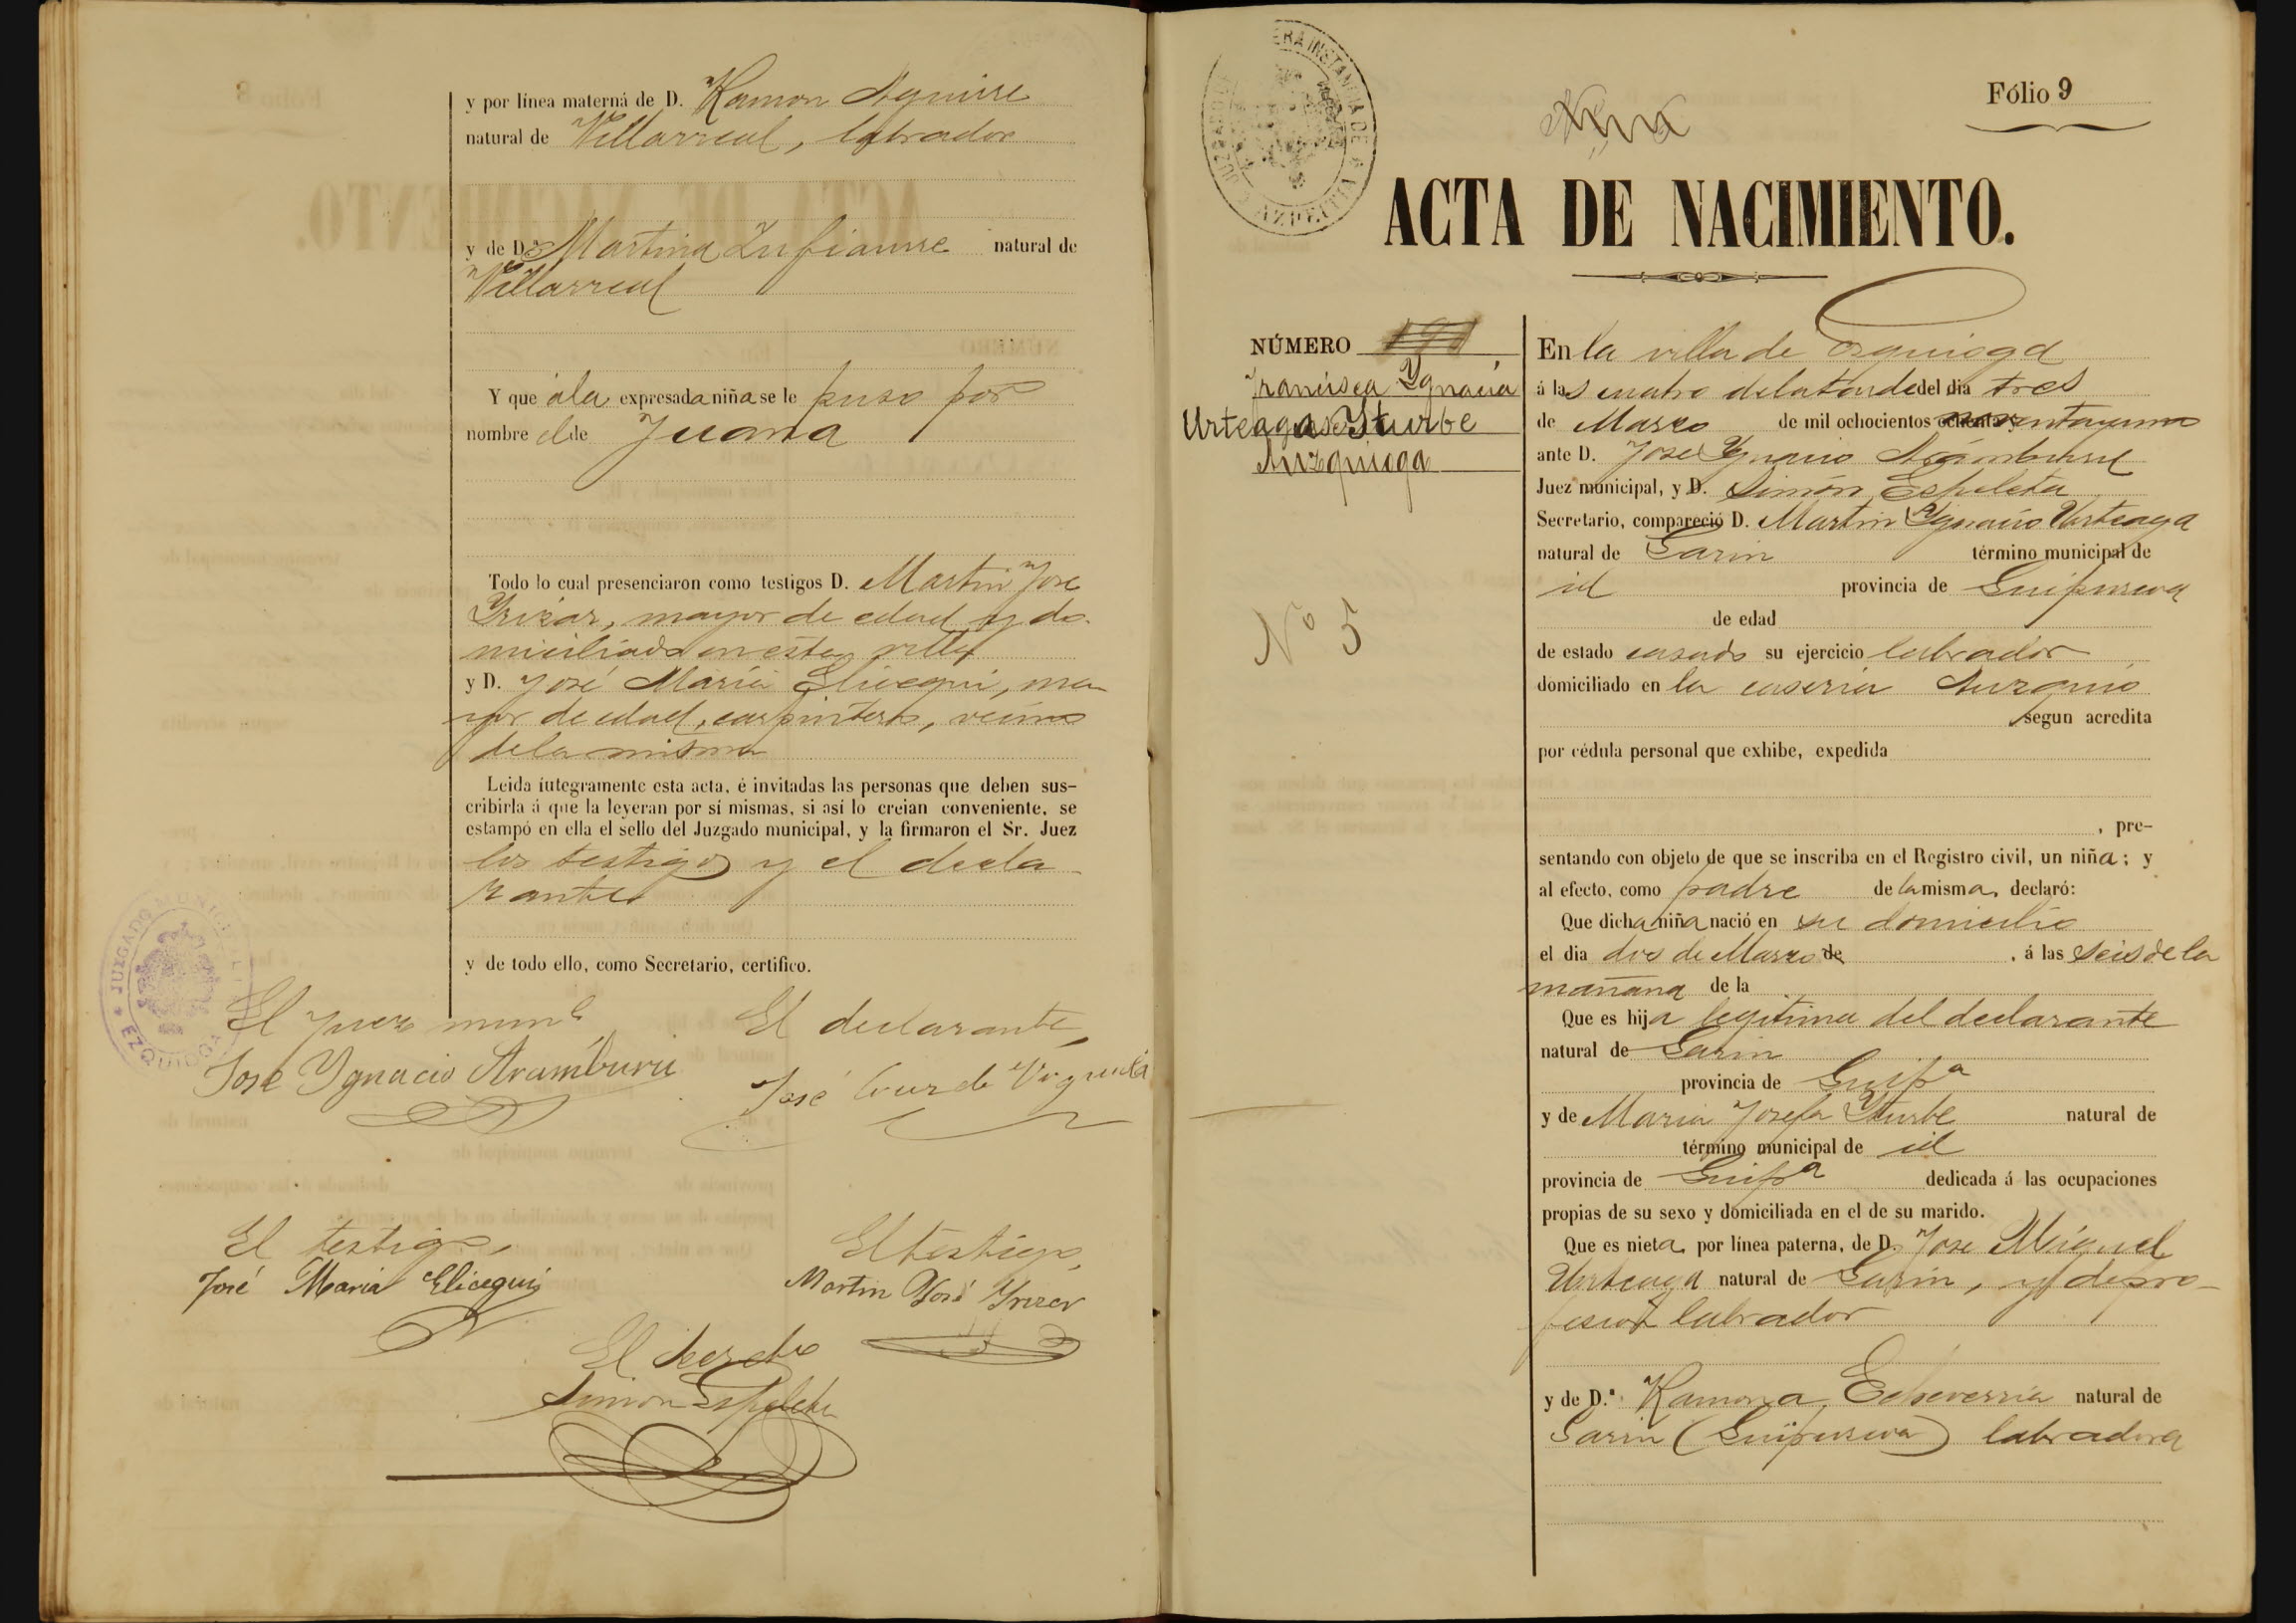 y por línea materná de D. Ramon Aguirre
natural de Villarreal, labrador
y de D.ª Martina Zufiaurre natural de
Villarreal
Y que á la expresada niña se le puso por
nombre de Juana
Todo lo cual presenciaron como testigos D. Martin Jose
Yrizar, mayor de edad y do-
miciliado en esta villa
y D. José Maria Elicegui, ma-
yor de edad, carpintero, vecino
de la misma
Leida íntegramente esta acta, é invitadas las personas que deben sus-
cribirla á que la leyeran por sí mismas, si así lo creian conveniente, se
estampó en ella el sello del Juzgado municipal, y la firmaron el Sr. Juez
los testigos y el decla-
rante
y de todo ello, como Secretario, certifico.
JUZGADO MUNICIPAL
EZQUIOGA
El Juez munl.
José Ygnacio Aramburu
El declarante,
José Cruz de
El testigo,
José Maria Elicegui
El testigo,
Martin José Yrizar
El Secreto
Simon Espeleta
Fólio 9
ACTA DE NACIMIENTO.
NÚMERO
Francisca Ygnacia
Urteaga Yturbe
Anzquioga
Nº 5
En la villa de Ezquioga
á las cuatro de la tarde del dia tres
de Marzo de mil ochocientos noventa y uno
ante D. José Ygnacio Aramburu
Juez municipal, y D. Simón Espeleta
Secretario, compareció D. Martin Ygnacio Urteaga
natural de Garin término municipal de
id provincia de Guipuzcoa
de edad
de estado casado su ejercicio labrador
domiciliado en la caseria Anzquio
segun acredita
por cédula personal que exhibe, expedida
, pre-
sentando con objeto de que se inscriba en el Registro civil, un niña; y
al efecto, como padre de la misma, declaró:
Que dicha niña nació en su domicilio
el dia dos de Marzo de , á las seis de la
mañana de la
Que es hija legitima del declarante
natural de Garin
provincia de Guipª
y de Maria Josefa Yturbe natural de
término municipal de id
provincia de Guipª dedicada á las ocupaciones
propias de su sexo y domiciliada en el de su marido.
Que es nieta por línea paterna, de D. Jose Miguel
Urteaga natural de Garin, y de pro-
fesion labrador
y de D.ª Ramona Echeverria natural de
Garin (Guipuzcoa) labradora